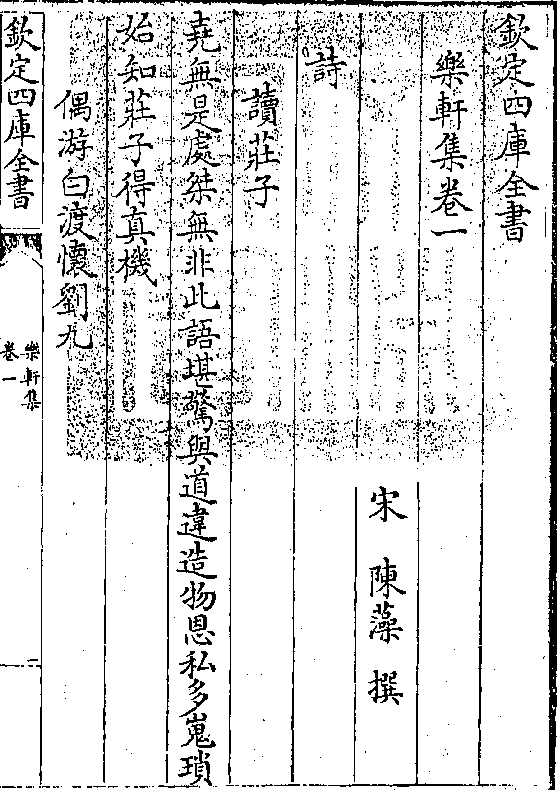 欽定四庫全書
樂軒集卷一
宋　陳藻　撰
詩
讀莊子
堯無是處桀無非此語堪驚與道違造物恩私多嵬瑣
始知莊子得真機
偶游白渡懷劉九
欽定四庫全書
樂軒集
卷一
一